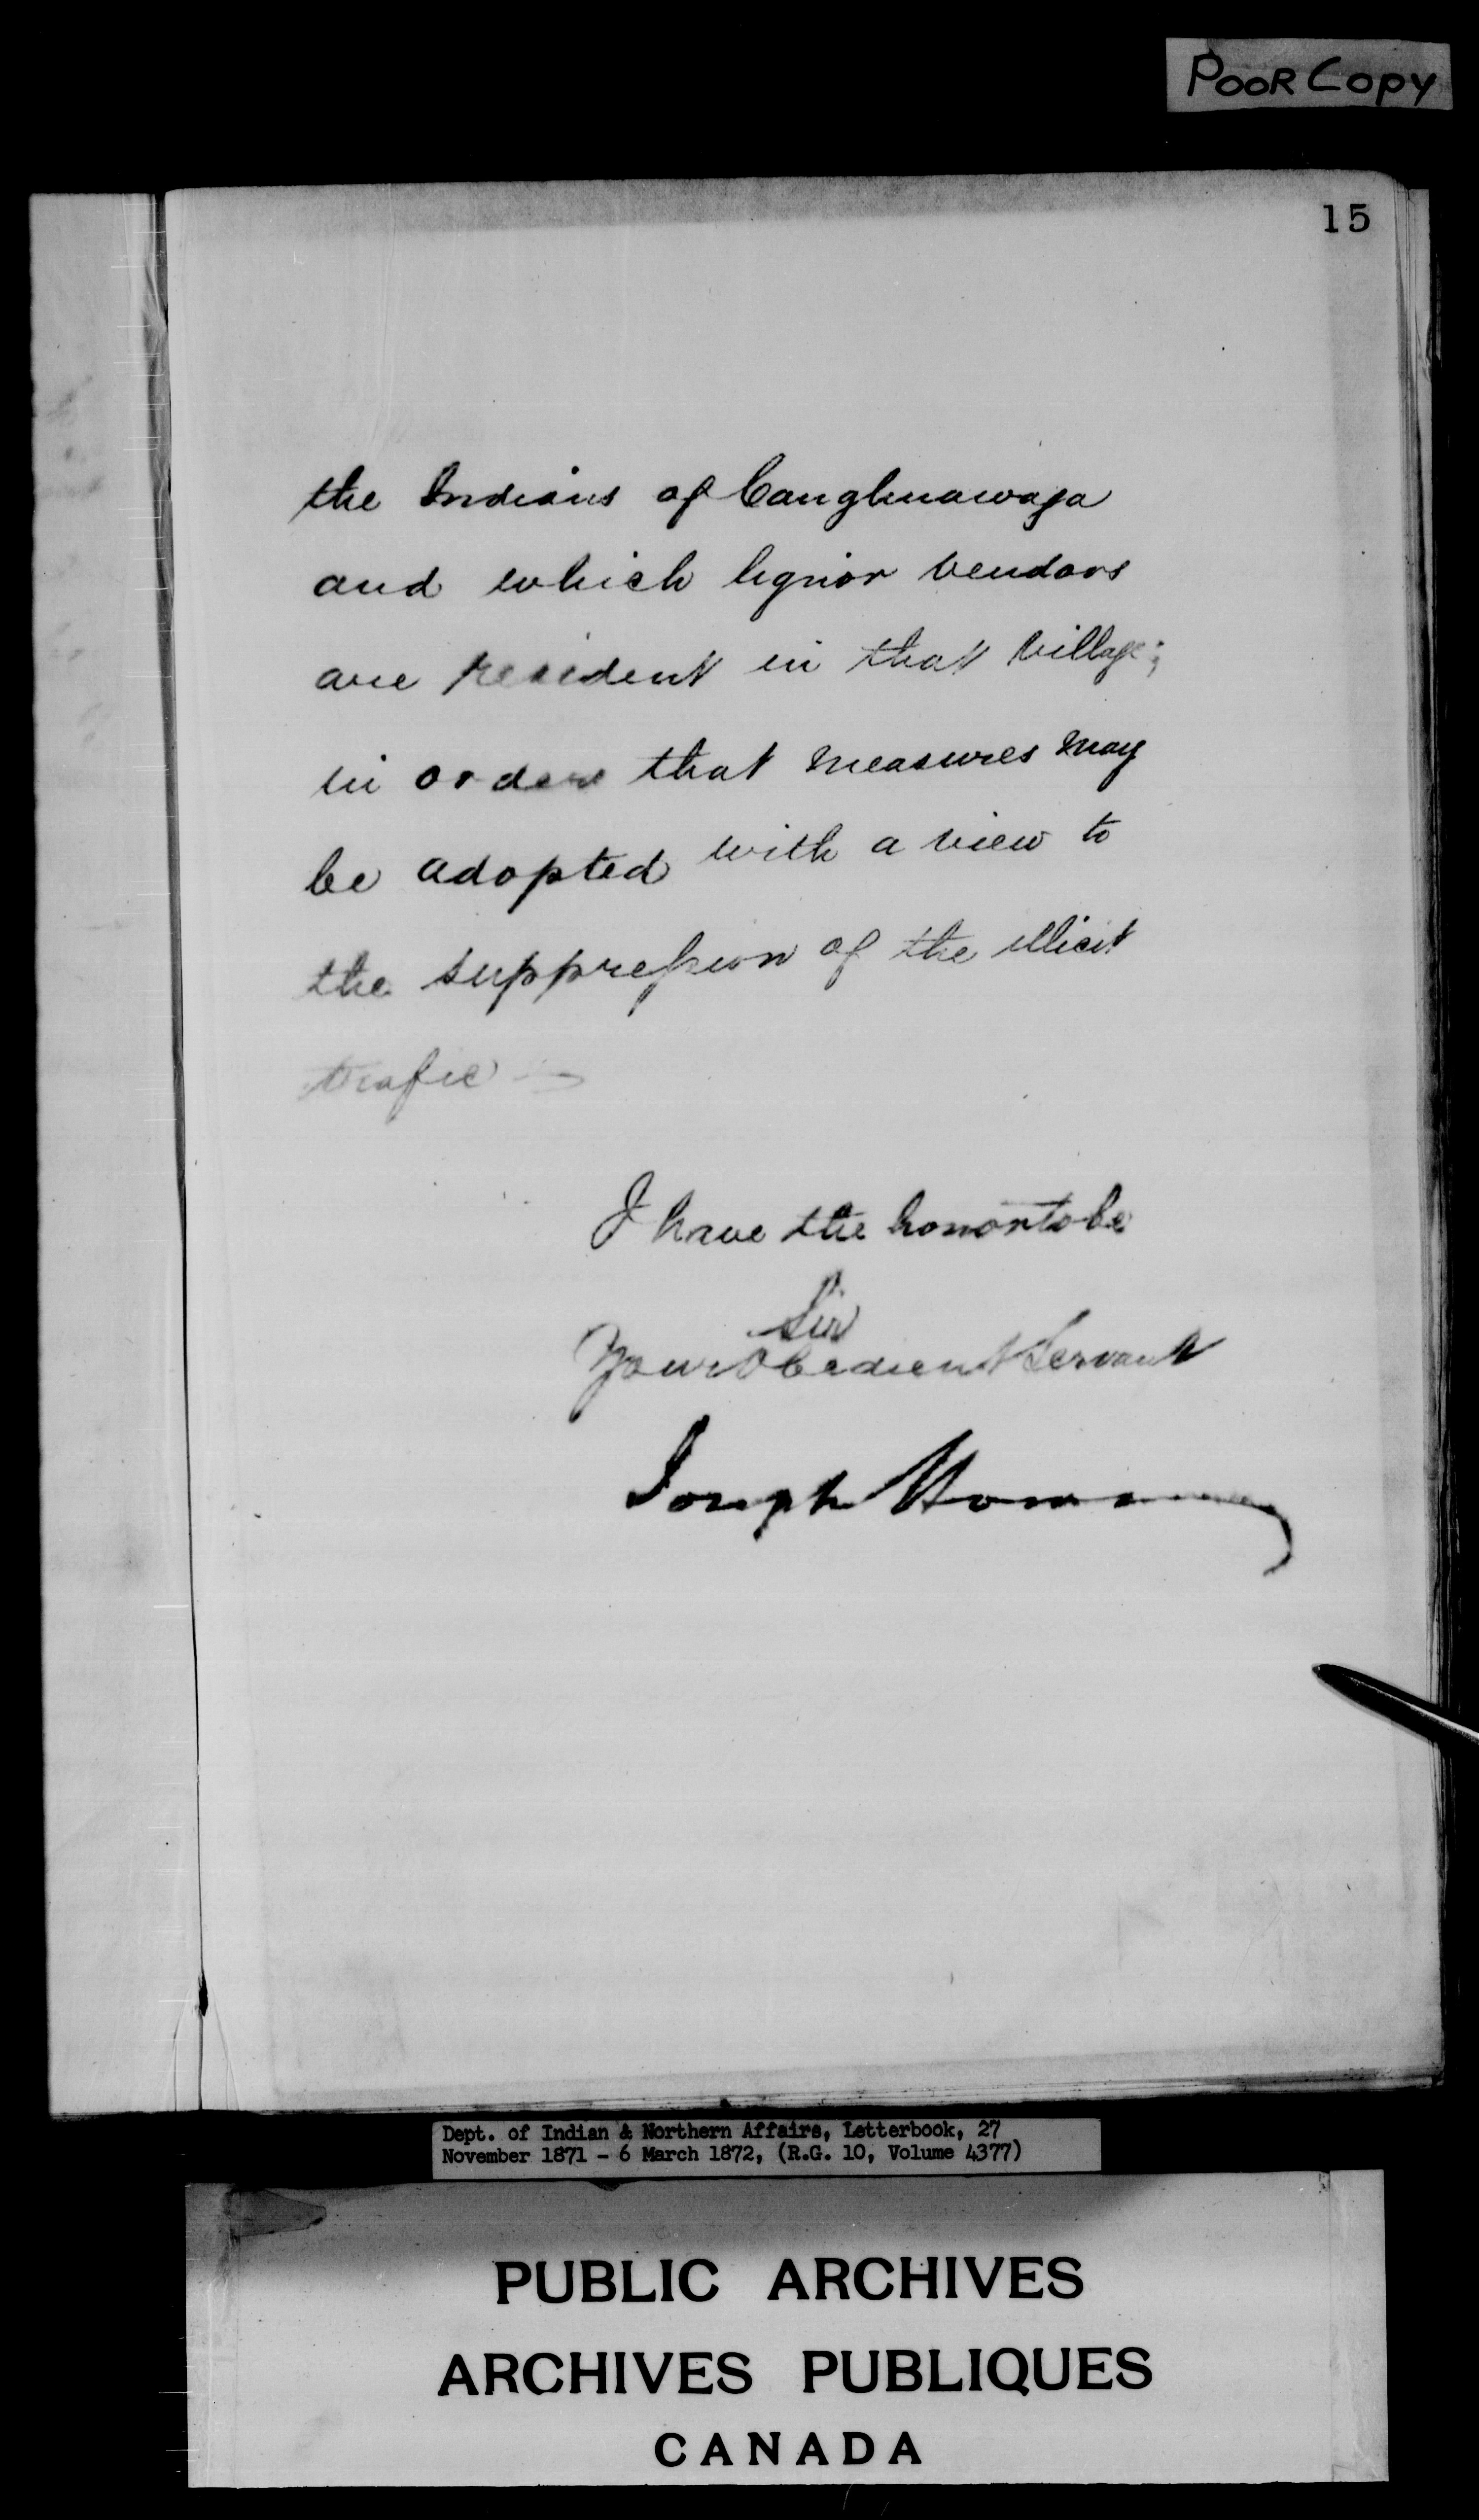 POOR COPY
15
the Indians of Caughnawaga
and which liquor vendors
are resident in that village;
in order that measures may
be adopted with a view to
the suppression of the illicit
trafic
I have the honor to be
Sir
Your Obedient Servant
Joseph Howe
Dept. of Indian & Northern Affairs, Letterbook, 27
November 1871 - 6 March 1872, (R.G. 10, Volume 4377)
PUBLIC ARCHIVES
ARCHIVES PUBLIQUES
CANADA